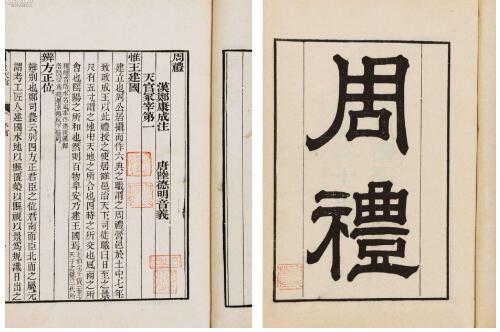 周禮
周禮
漢鄭康成注 唐陸德明音義
天官冢宰第一
惟王建國
建立也周公居攝而作六典之職謂之周禮營邑於土中七年
致政成王以此禮授之使居雒邑治天下司徒職曰日至之景
尺有五寸謂之地中天地之所合也四時之所交也風雨之所
會也陰陽之所和也然則百物阜安乃建王國焉
辨方正位
辨別也鄭司農云別四方正君臣之位君南面臣北面之屬元
謂考工匠人建國水地以縣置槷以縣視以景爲規識日出之